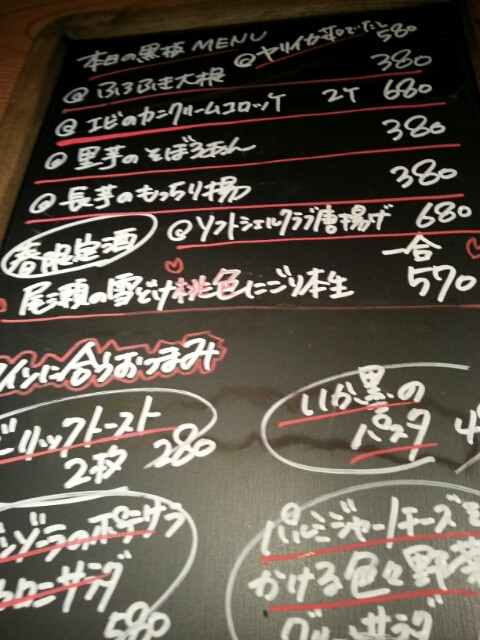 本日の黒板 MENU
@ヤリイカ茹でたし 580
@ふろふき大根 380
@エビのカニクリームコロッケ 2ケ 680
@里芋のそぼろあん 380
@長芋のもっちり揚 380
春限定酒
@ソフトシェルクラブ唐揚げ 680
尾瀬の雪どけ桃色にごり本生 一合 570
インに合うおつまみ
ーリックトースト
2枚 280
いか墨の
パスタ 4
ンゾーラのポテサラ
カロニサラダ
580
パルミジャーノチーズを
かける色々野菜
グリーンサラダ